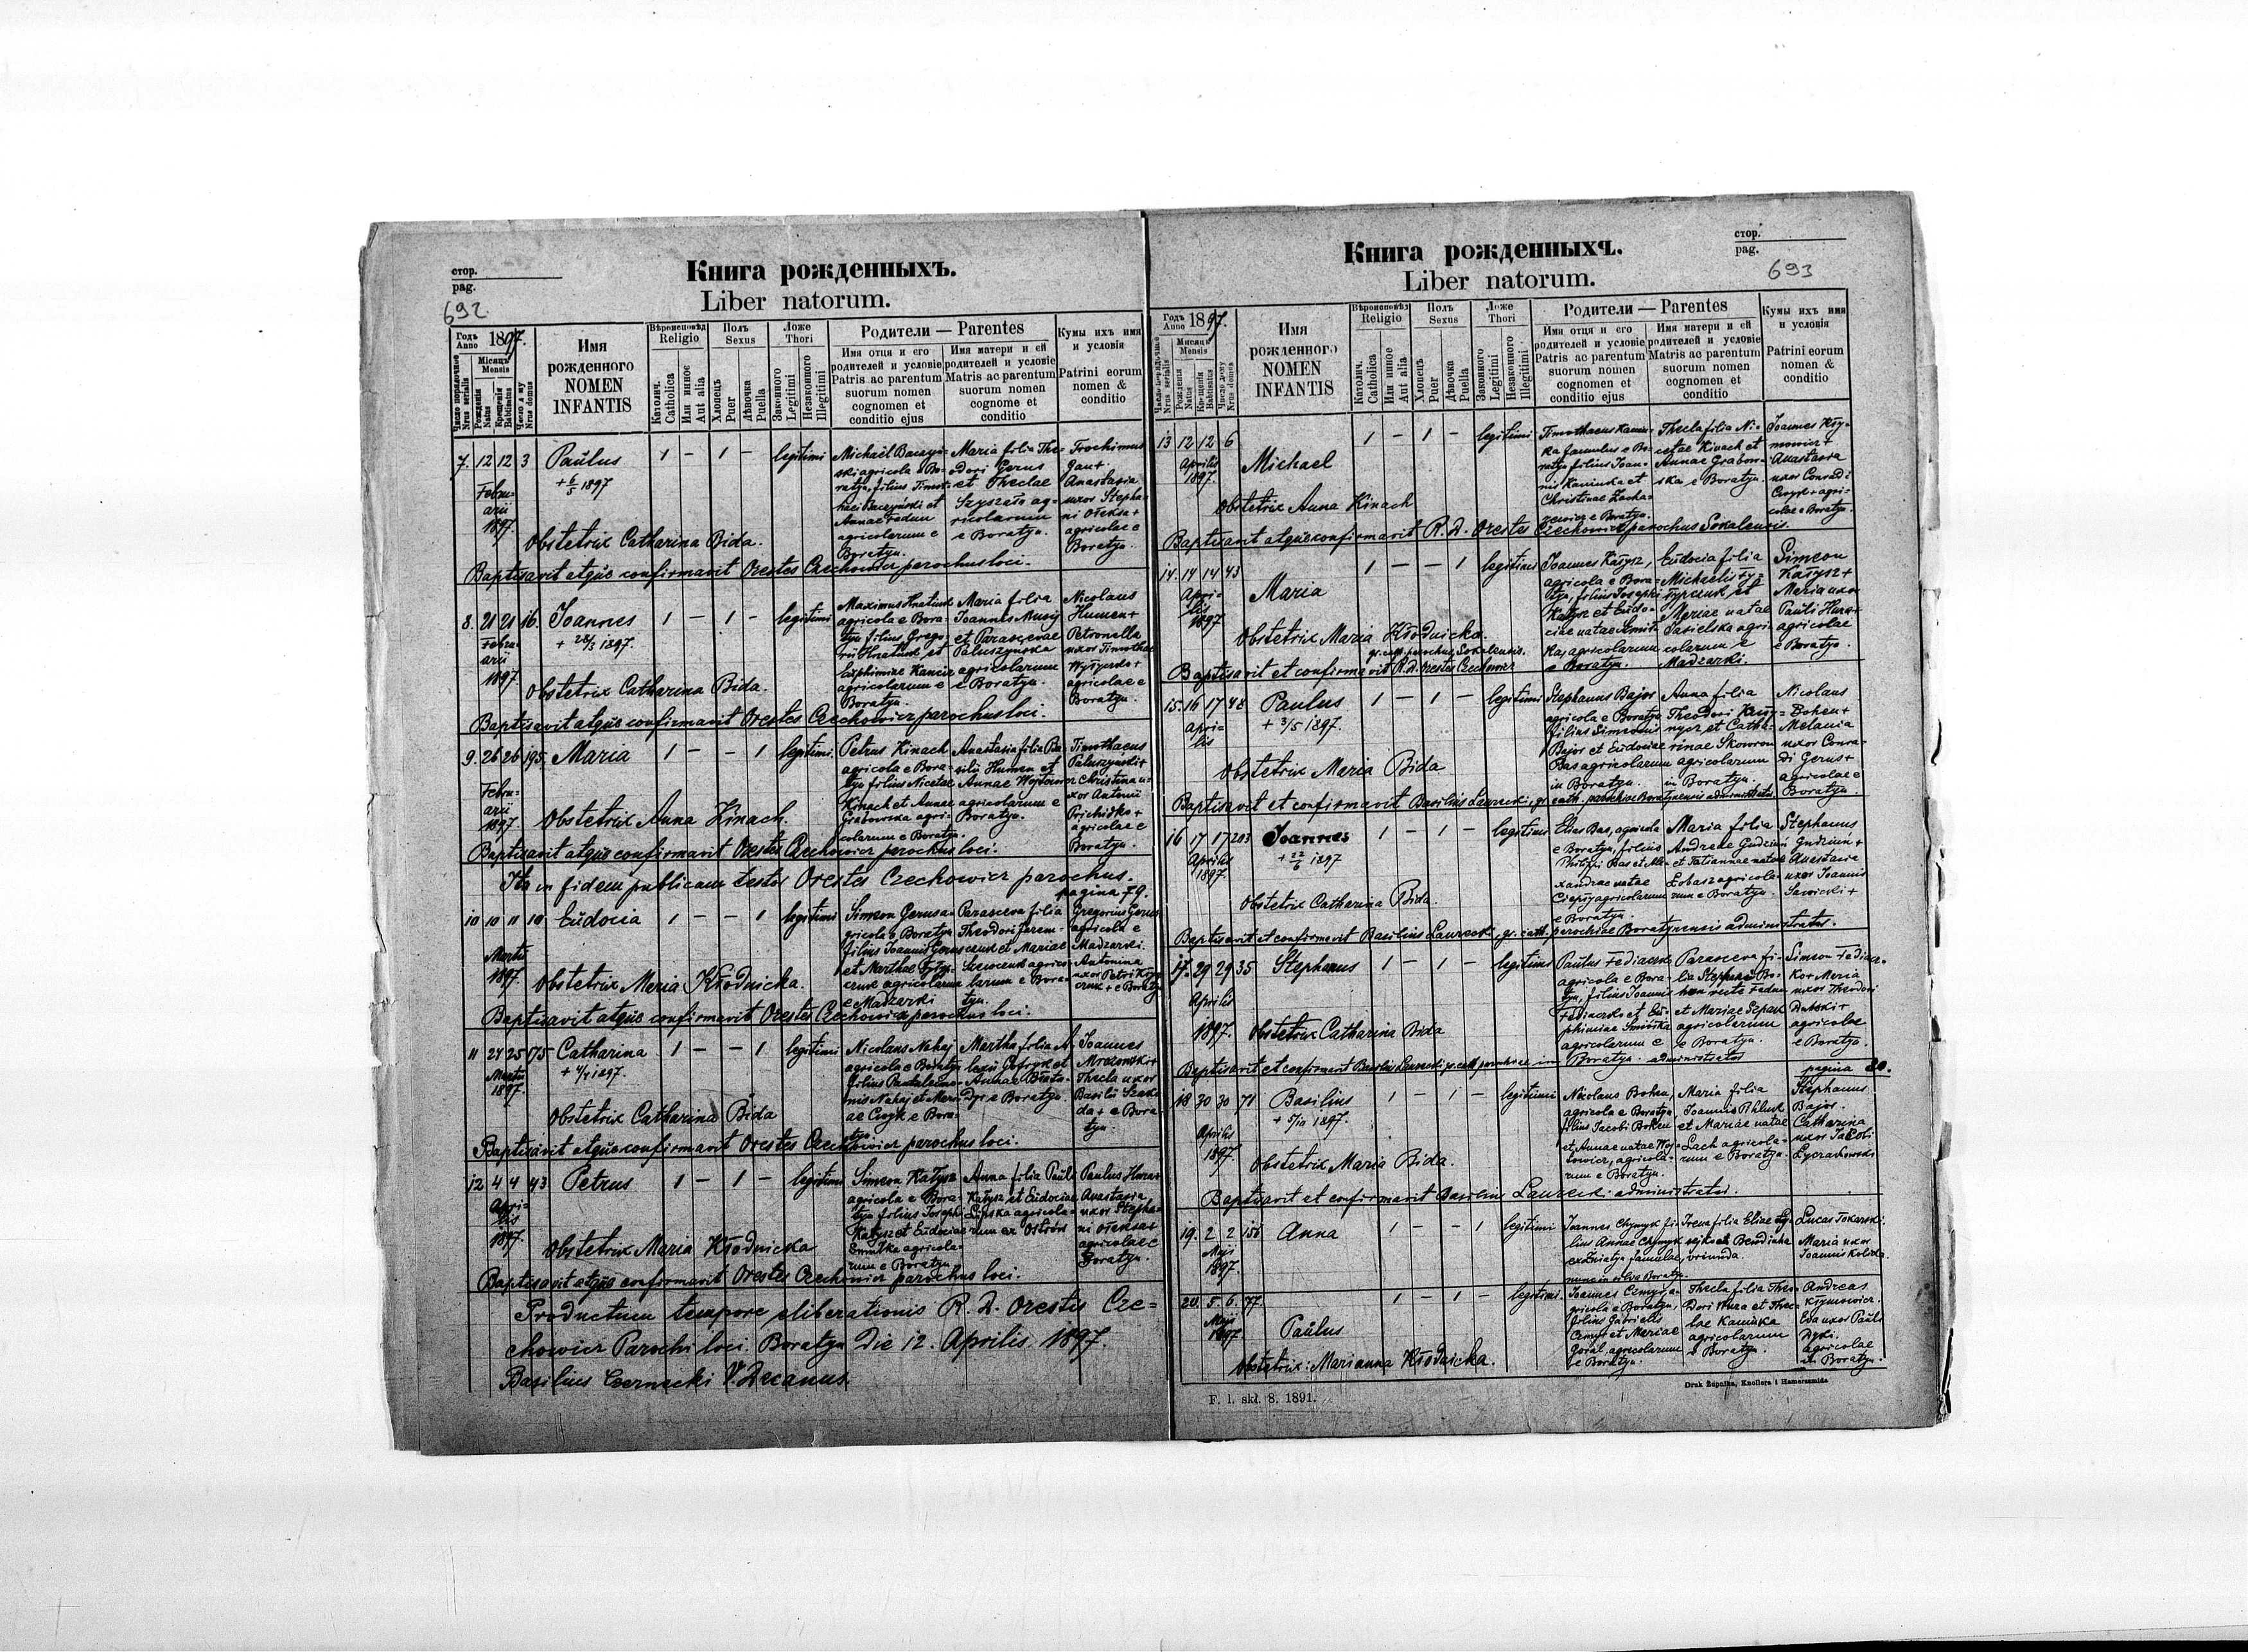 стор.
pag.
692
Книга рожденныхъ.
Liber natorum.
Годъ Anno 1897.
Число порядочное Nrus serialis
Мѣсяць Mensis
Рожденія Natus
Крещенія Babtisatus
Число дому Nrus domus
Имя
рожденного
NOMEN
INFANTIS
Вѣроисповѣд
Religio
Католич. Catholica
Или инное Aut alia
Полъ
Sexus
Хлопецъ Puer
Дѣвочка Puella
Ложе
Thori
Законного Legitimi
Незаконного Illegitimi
Родители — Parentes
Имя отця и его
родителей и условіе
Patris ac parentum
suorum nomen
cognomen et
conditio ejus
Имя матери и ей
родителей и условіе
Matris ac parentum
suorum nomen
cognome et
conditio
Кумы ихъ имя
и условія
Patrini eorum
nomen &
conditio
7. 12 12 3 Paŭlus 1 – 1 – legitimi
+ 6/5 1897
Febru=
arii
1897.
Michaël
agricola e Bo=
ratyn, filius Timot=
Annae Fedun
agricolarum e
Boratyn.
Maria filia The=
odori Gerus
et Theclae
ag=
ricolarum
e Boratyn.
Trochimus
Anastasia
uxor Stepha=
ni Oleksa +
agricolae e
Boratyn.
Obstetrix Catharina Bida.
Baptisavit atgŭe confirmavit Orestes Czechowicz parochus loci.
8. 21 21 16. Joannes 1 – 1 – legitimi
+ 28/3 1897.
Febru=
arii
1897
Maximus Hnatiuk
agricola e Bora=
tyn filius Grego=
rii Hnatiuk et
Euphimiae
agricolarum e
Boratyn.
Maria filia
Joannis
et Parascevae
Paluszynska
agricolarum
e Boratyn.
Nicolaus
Humen +
Petronella
uxor Timothei
agricolae e
Boratyn.
Obstetrix Catharina Bida.
Baptisavit atgŭe confirmavit Orestes Czechowicz parochus loci.
9. 26 26 195. Maria 1 – – 1 legitimi.
Febru=
arii
1897.
Petrus Kinach
agricola e Bora=
tyn filius Nicetae
Kinach et Annae
Grabowska agri=
colarum e Boratyn.
Anastasia filia Ba=
silii Humen et
Annae Wojtowicz
agricolarum e
Boratyn.
Timothaeus
Paluszynski +
Christina u=
xor Antonii
Prichidko +
agricolae e
Boratyn.
Obstetrix Anna Kinach.
Baptisavit atgŭe confirmavit Orestes Czechowicz parochus loci.
Ita in fidem publicam testor Orestes Czechowicz parochus.
pagina 79.
10 10 11 10 Eŭdocia 1 – – 1 legitimi
Martii
1897.
Simeon Gerus a=
gricola e Boratyn
filius Joannis Gerus
et Marthae
agricolarum
e Madzarki
Parasceva filia
Theodori
et Mariae
agrico=
larum e Bora=
tyn.
Gregorius Gerus
agricola e
Madzarki.
Antonina
uxor Petri
+ e Boratyn
Obstetrix Maria Kłodnicka.
Baptisavit atgŭe confirmavit Orestes Czechowicz parochus loci.
11 24 25 175 Catharina 1 – – 1 legitimi
+ 4/4 1897.
Martii
1897.
Nicolaus Nahaj
agricola e Boratyn
filius Pantaleimo=
nis Nahaj et Mari=
ae Czyk e Bora=
tyn.
Martha filia A=
lexii et
Annae
e Boratyn.
Joannes
Mrozowski +
Thecla uxor
Basilii
+ e Bora
tyn.
Obstetrix Catharina Bida
Baptisavit atgŭe confirmavit Orestes Czechowicz parochus loci.
12 4 4 43 Petrus 1 – 1 – legitimi
Apri=
lis
1897.
Simeon Kałysz
agricola e Bora=
tyn filius Josephi
Kałysz et Eudociae
Smitka agricola=
rum e Boratyn
Anna filia Paŭli
Kałysz et Eudociae
Lipska agricola=
rum ex Ostrów
Paulus
Anastasia
uxor Stepha=
ni Oleksa +
agricolae e
Boratyn.
Obstetrix Maria Kłodnicka
Baptisavit atgŭe confirmavit Orestes Czechowicz parochus loci.
Productum tempore eliberationis R. D. Orestis Cze=
chowicz Parochi loci. Boratyn die 12. Aprilis 1897.
Basilius Czernecki V. Decanus.
стор.
pag.
693
Книга рожденныхъ.
Liber natorum.
Годъ Anno 1897.
Число порядочное Nrus serialis
Мѣсяць Mensis
Рожденія Natus
Крещенія Babtisatus
Число дому Nrus domus
Имя
рожденного
NOMEN
INFANTIS
Вѣроисповѣд
Religio
Католич. Catholica
Или инное Aut alia
Полъ
Sexus
Хлопецъ Puer
Дѣвочка Puella
Ложе
Thori
Законного Legitimi
Незаконного Illegitimi
Родители — Parentes
Имя отця и его
родителей и условіе
Patris ac parentum
suorum nomen
cognomen et
conditio ejus
Имя матери и ей
родителей и условіе
Matris ac parentum
suorum nomen
cognomen et
conditio
Кумы ихъ имя
и условія
Patrini eorum
nomen &
conditio
13 12 12 6 Michael 1 – 1 – legitimi
Aprilis
1897.
Timothaeus Kamin=
ka famulus e Bo=
ratyn filius Joan=
nis Kaminka et
Christinae Zacha=
rewicz e Boratyn.
Thecla filia Ni=
cetae Kinach et
Annae Grabow=
ska e Boratyn.
Joannes Kły=
mowicz +
Anastasia
uxor Conradi
Czyk + agri=
colae e Boratyn.
Obstetrix Anna Kinach
Baptisavit atgŭe confirmavit R. D. Orestes Czechowicz parochus Sokalensis.
14. 14 14 43 Maria 1 – – 1 legitimi
Apri=
lis
1897
Joannes Kałysz,
agricola e Bora=
tyn, filius Josephi
Kałysz et Eudo=
ciae natae Smit=
ka, agricolarum
e Boratyn.
Eŭdocia filia
Michaelis
et
Mariae natae
Jasielska agri=
colarum e
Madzarki.
Simeon
Kałysz +
Maria uxor
Pauli
agricolae
e Boratyn.
Obstetrix Maria Kłodnicka.
gr. cath. parochus Sokalensis.
Baptisavit et confirmavit R. D. Orestes Czechowicz
15. 16 17 48 Paulus 1 – 1 – legitimi
+ 3/5 1897.
Apri=
lis
Stephanus Bajor
agricola e Boratyn
filius Simeonis
Bajor et Eŭdociae
Bas agricolarum
in Boratyn.
Anna filia
Theodori
et Catha=
rinae Skowron
agricolarum
in Boratyn.
Nicolaus
Bohen +
Melania
uxor Conra=
di Gerus +
agricolae e
Boratyn.
Obstetrix Maria Bida
Baptisavit et confirmavit Basilius Laurecki, gr. cath. parochiae Boratynensis administrator.
16 17 17 203 Joannes 1 – 1 – legitimi
+ 22/6 1897
Aprilis
1897.
Elias Bas, agricola
e Boratyn, filius
Philippi Bas et Ale=
xandrae natae
agricolarum
e Boratyn.
Maria filia
Andreae Gudziuń
et Tatiannae natae
Łobasz agricola=
rum e Boratyn.
Stephanus
Gudziuń +
Anastasia
uxor Joannis
Sawicki +
Obstetrix Catharina Bida.
Baptisavit et confirmavit Basilius Laurecki, gr. cath. parochiae Boratynensis administrator.
17. 29 29 35 Stephanus 1 – 1 – legitimi
Aprilis
1897.
Paulus Fediaczko
agricola e Bora=
tyn, filius Joannis
Fediaczko et Eŭ=
phimiae
agricolarum e
Parasceva fi=
lia Stephani Bo=
hen recte Fedun
et Mariae
agricolarum
e Boratyn.
Simeon Fediacz=
ko + Maria
uxor Theodori
Dutski +
agricolae
e Boratyn.
Obstetrix Catharina Bida
Baptisavit et confirmavit Basilius Laurecki gr. cath. parochiae in Boratyn administrator
pagina 80.
18 30 30 71 Basilius 1 – 1 – legitimi
+ 5/10 1897.
Aprilis
1897.
Nicolaus Bohen,
agricola e Boratyn,
filius Jacobi Bohen
et Annae natae Woj=
towicz, agricola=
rum e Boratyn.
Maria filia
Joannis
et Mariae natae
Lach agricola=
rum e Boratyn.
Stephanus
Bajor.
Catharina
uxor Jacobi
Obstetrix Maria Bida.
Baptisavit et confirmavit Basilius Laurecki administrator.
19. 2 2 156 Anna 1 – – 1 legitimi
Maji
1897.
Joannes Chymyk fi=
lius Annae Chymyk
ex Zniatyn famulae,
nunc in silva Boratyn.
Irena filia Eliae
et
oriunda
Lucas Tokarski.
Maria uxor
Joannis Kolida.
20. 5. 6. 77. Paŭlus 1 – 1 – legitimi.
Maji
1897
Joannes a=
gricola e Boratyn,
filius Gabrielis
et Mariae
Goral agricolarum
e Boratyn.
Thecla filia Theo=
dori et Thec=
lae Kaminka
agricolarum
e Boratyn.
Andreas
Kłymowicz.
Eva uxor Paŭli
agricolae
in Boratyn.
Obstetrix: Marianna Kłodnicka.
Druk Żupnika, Knollera i Hamerszmida
F. l. skł. 8. 1891.